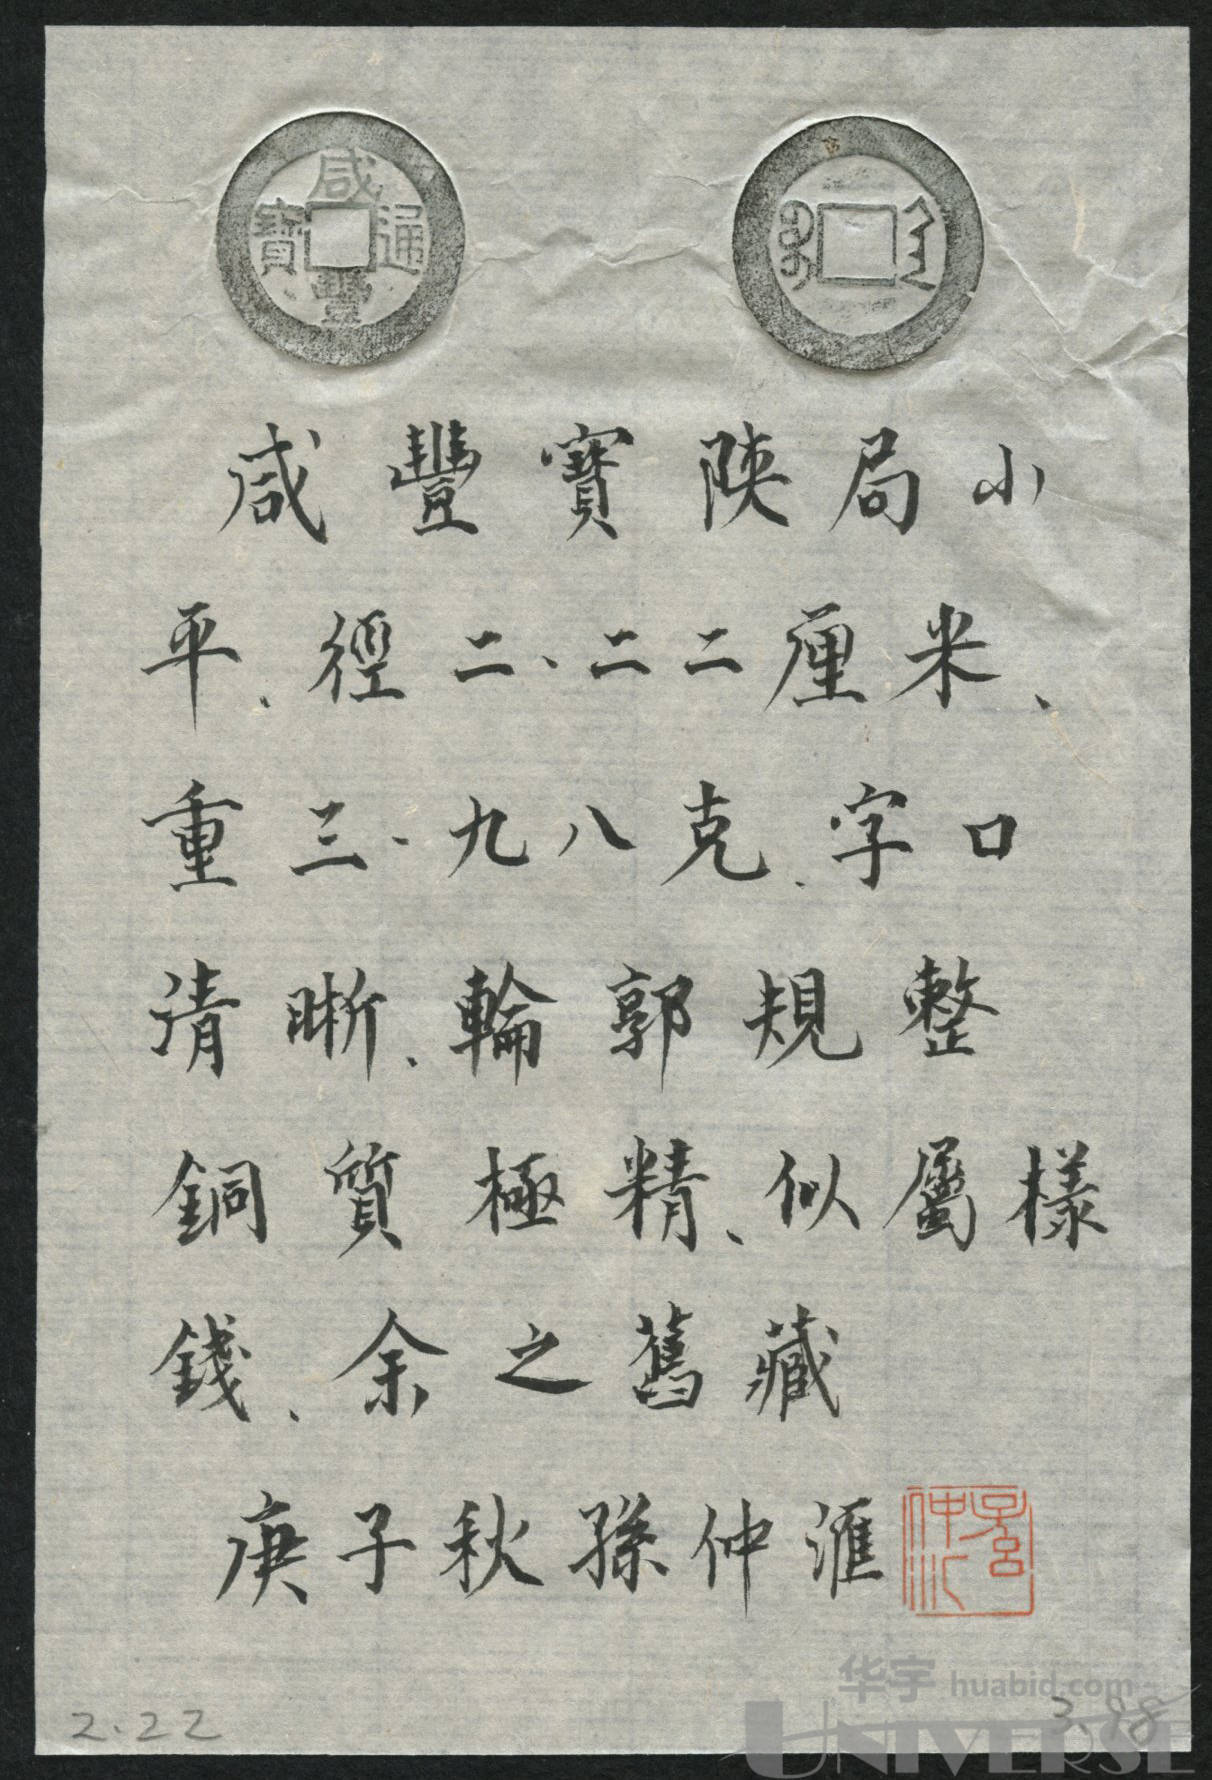 咸豐通寳
咸豐寳陝局小
平、徑二、二二厘米、
重三、九八克、字口
清晰、輪郭規整
銅質極精、似屬樣
錢、余之舊藏
庚子秋孫仲滙
2.22
3.98
华宇 huabid.com
UNIVERSE